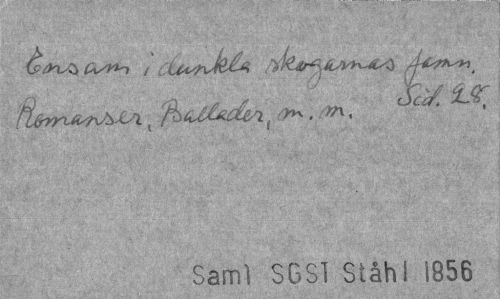 Ensam i dunkla skogarnas famn.
Romanser, Ballader, m. m. Sid. 28.
Saml SGST Ståhl 1856